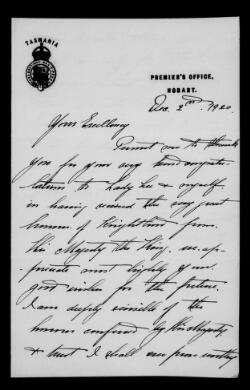 TASMANIA
PREMIER'S OFFICE,
HOBART.
Dec. 2nd. 1920.
Your Excellency
Permit me to thank
you for your very kind congratu-
lations to Lady Lee & myself
in having received the very great
honour of Knighthood from
His Majesty the King. We ap-
preciate most highly your
good wishes for the future.
I am deeply sensible of the
honour conferred by His Majesty,
& trust I shall ever prove worthy